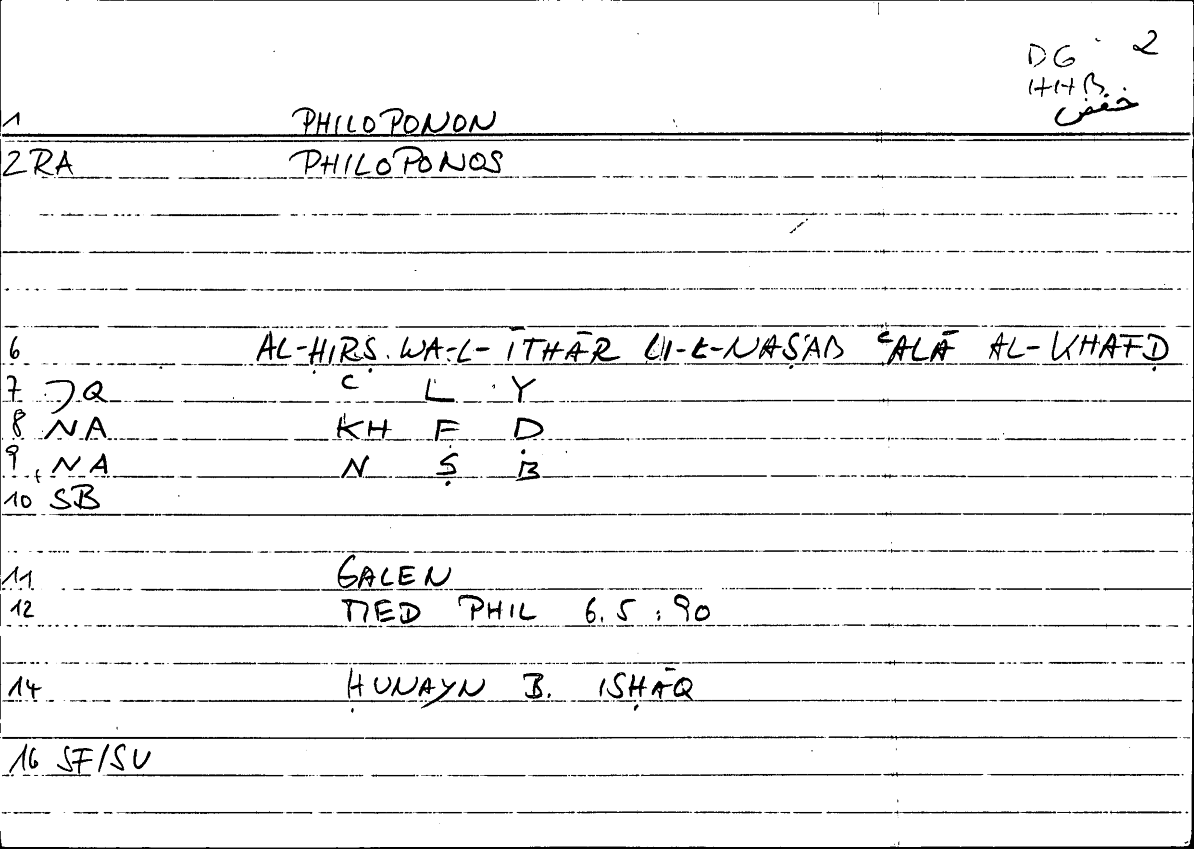 DG 2
HHB
خفض
1 PHILOPONON
2 RA PHILOPONOS
6 AL-ḤIRṢ WA-L-ĪTHĀR LI-L-NAṢAB ʿALĀ AL-KHAFḌ
7 JQ ʿ L Y
8 NA KH F Ḍ
9 NA N Ṣ B
10 SB
11 GALEN
12 MED PHIL 6.5 : 90
14 ḤUNAYN B. ISḤĀQ
16 SF/SU